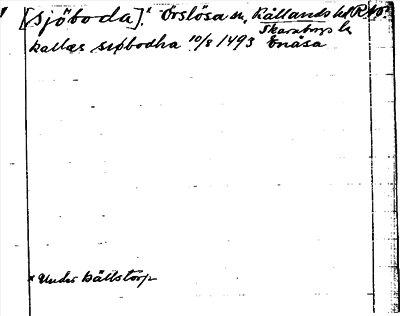 [Sjöboda].x Örslösa sn, Kållands hd
Skaraborgs l.
kallas siøbodha 10/8 1493 Enåsa
x Under Bällstorp